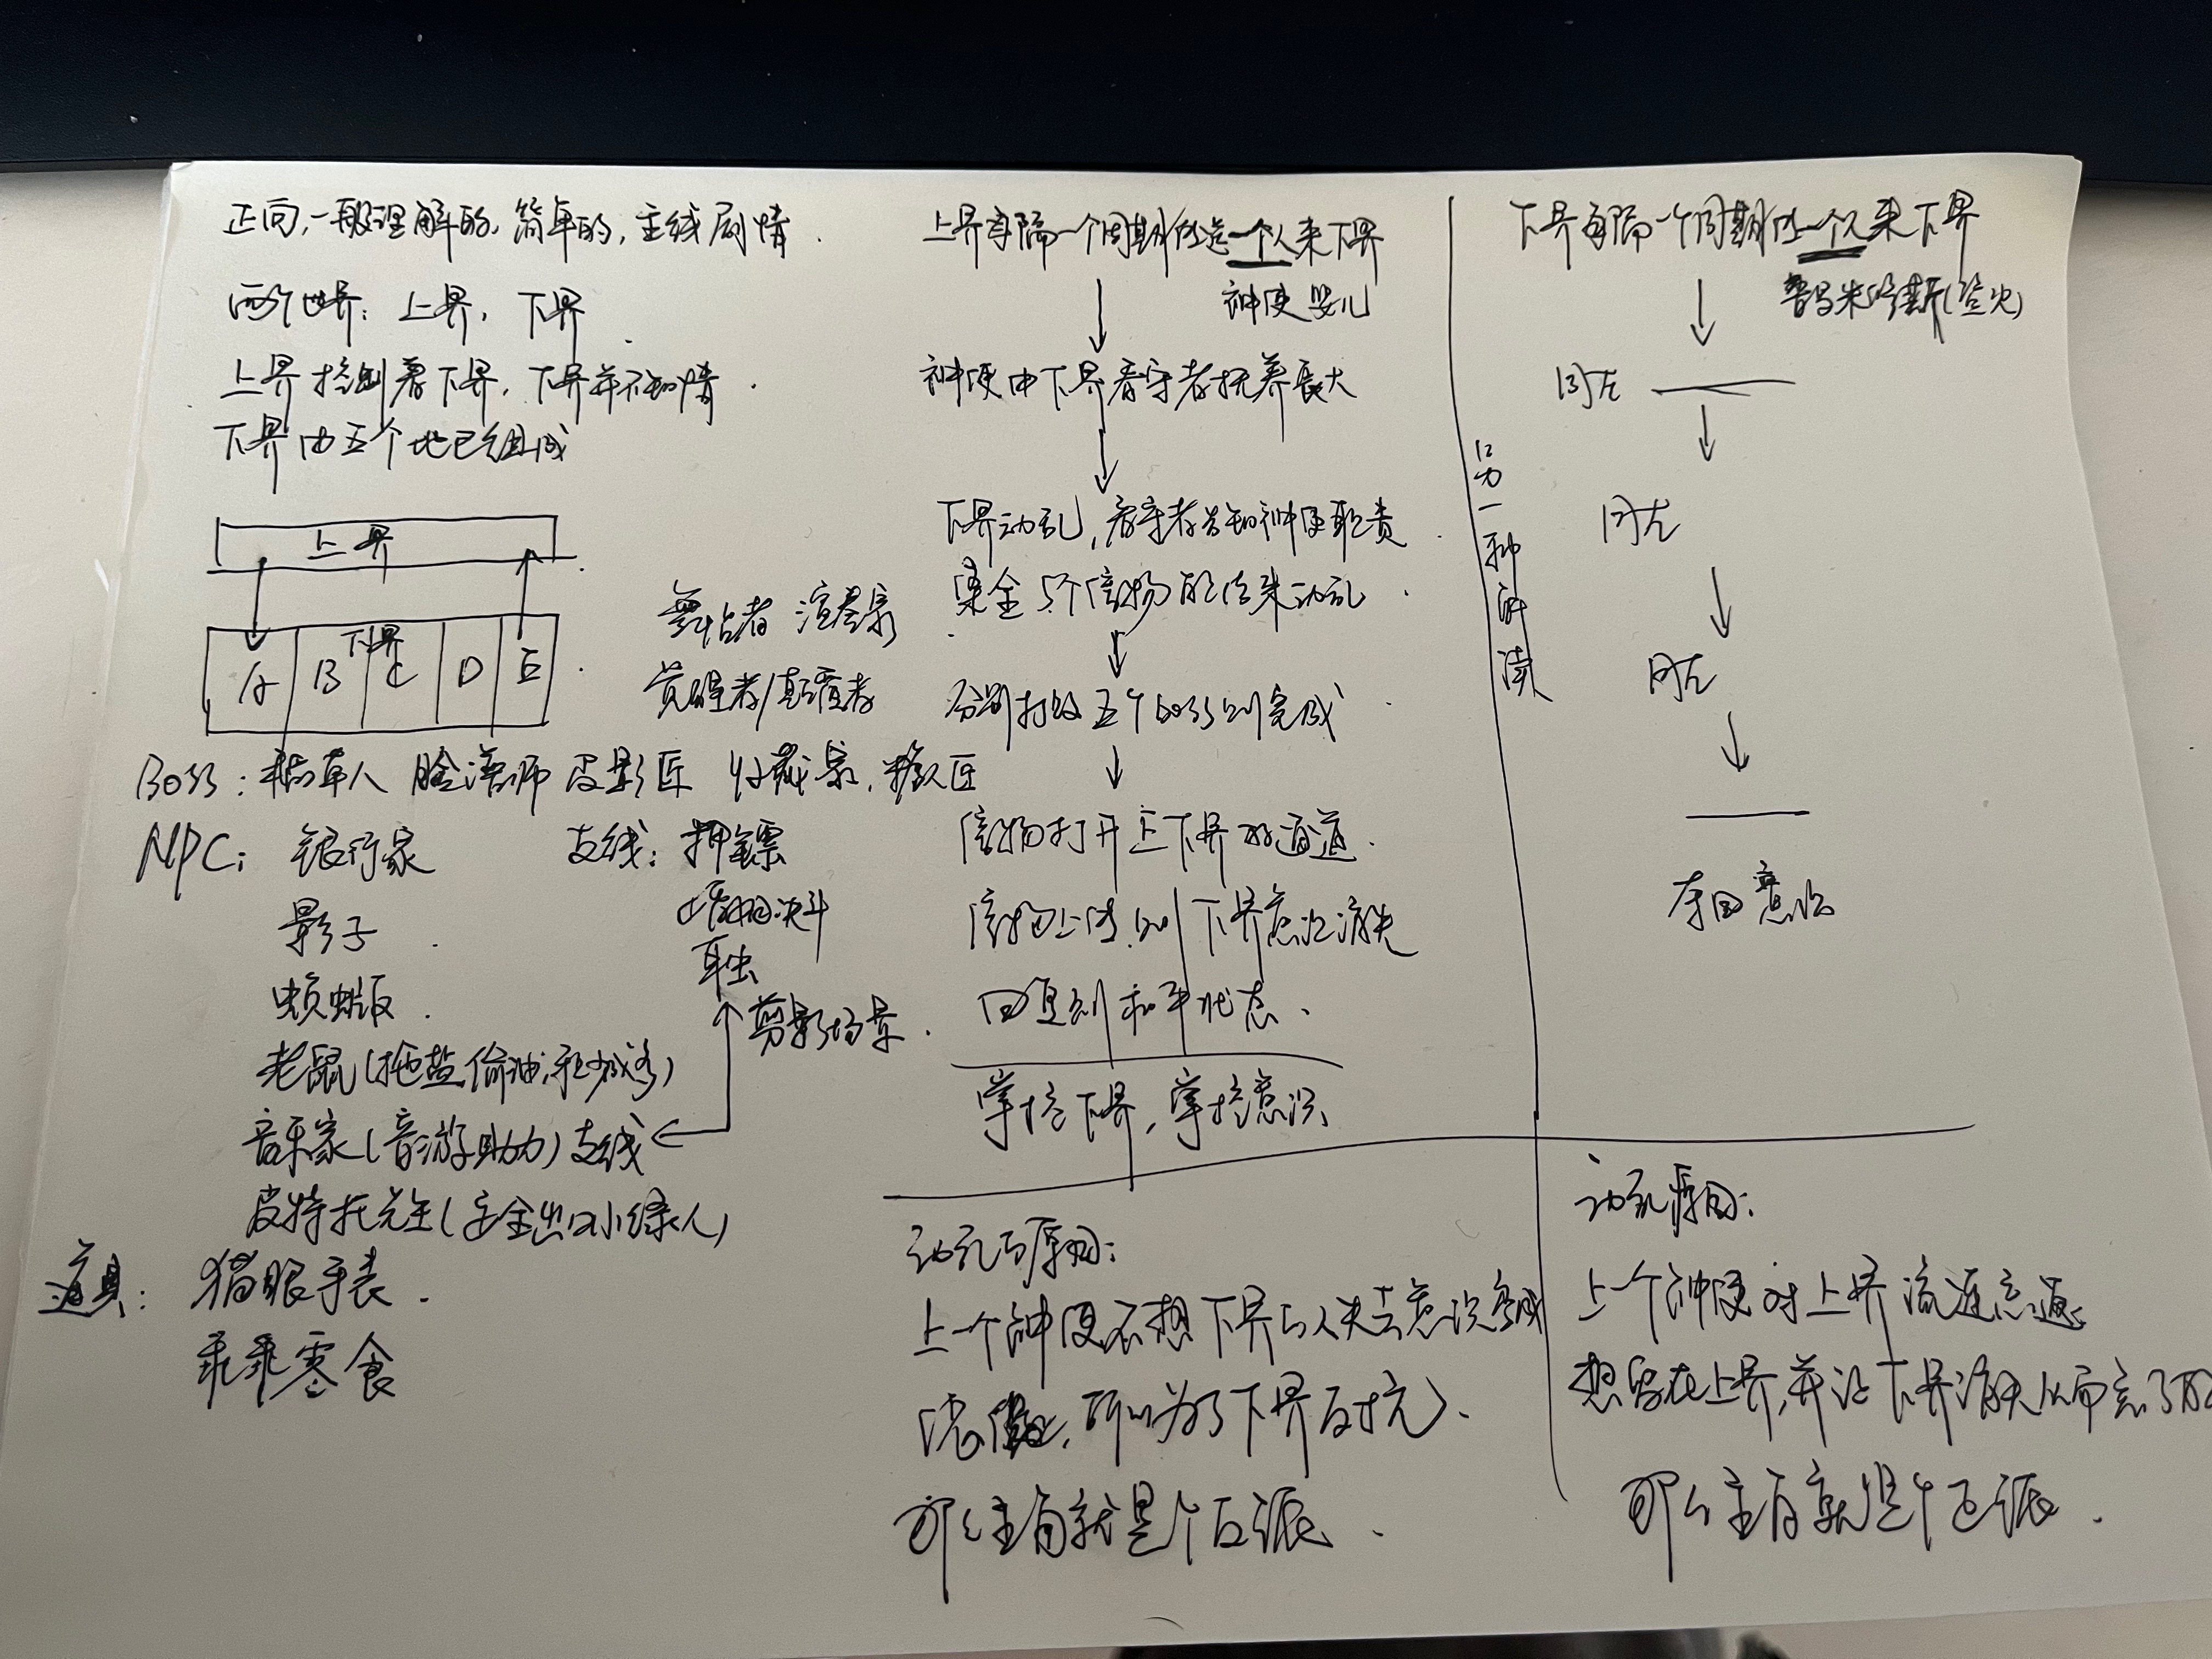 正向,一般理解的,简单的,主线剧情.
两个世界:上界,下界.
上界控制着下界,下界并不知情.
下界由五个地已组成
上界
下界
A B C D E
舞台者 演奏家
觉醒者/颠覆者
Boss:稻草人 脸谱师 皮影匠 收藏家,糖人匠
NPC:银行家
影子.
老鼠(拖盐偷油,积少成多)
音乐家(音游助力)支线
皮特托先生(安全出口小绿人)
支线:押镖
决斗
耳虫
剪影场景.
道具:猫眼手表.
乖乖零食
上界每隔一个周期任选一个人来下界
神使 婴儿
神使由下界看守者抚养长大
下界动乱,看守者告知神使职责.
集全5个信物能结束动乱.
分别打败五个boss则完成.
信物打开上下界的通道.
信物上传,则下界意识消失
回复到和平状态.
掌控下界,掌控意识
动乱的原因:
上一个神使不想下界的人失去意识变成
傀儡,所以为了下界反抗).
那么主角就是个反派.
另一种讲法
下界每隔一个周期任一个人来下界
普罗米修斯(盗火)
同左
同左
同左
夺回意识
动乱原因:
上一个神使对上界流连忘返
想留在上界,并让下界消失从而忘了
那么主角就是个正派.